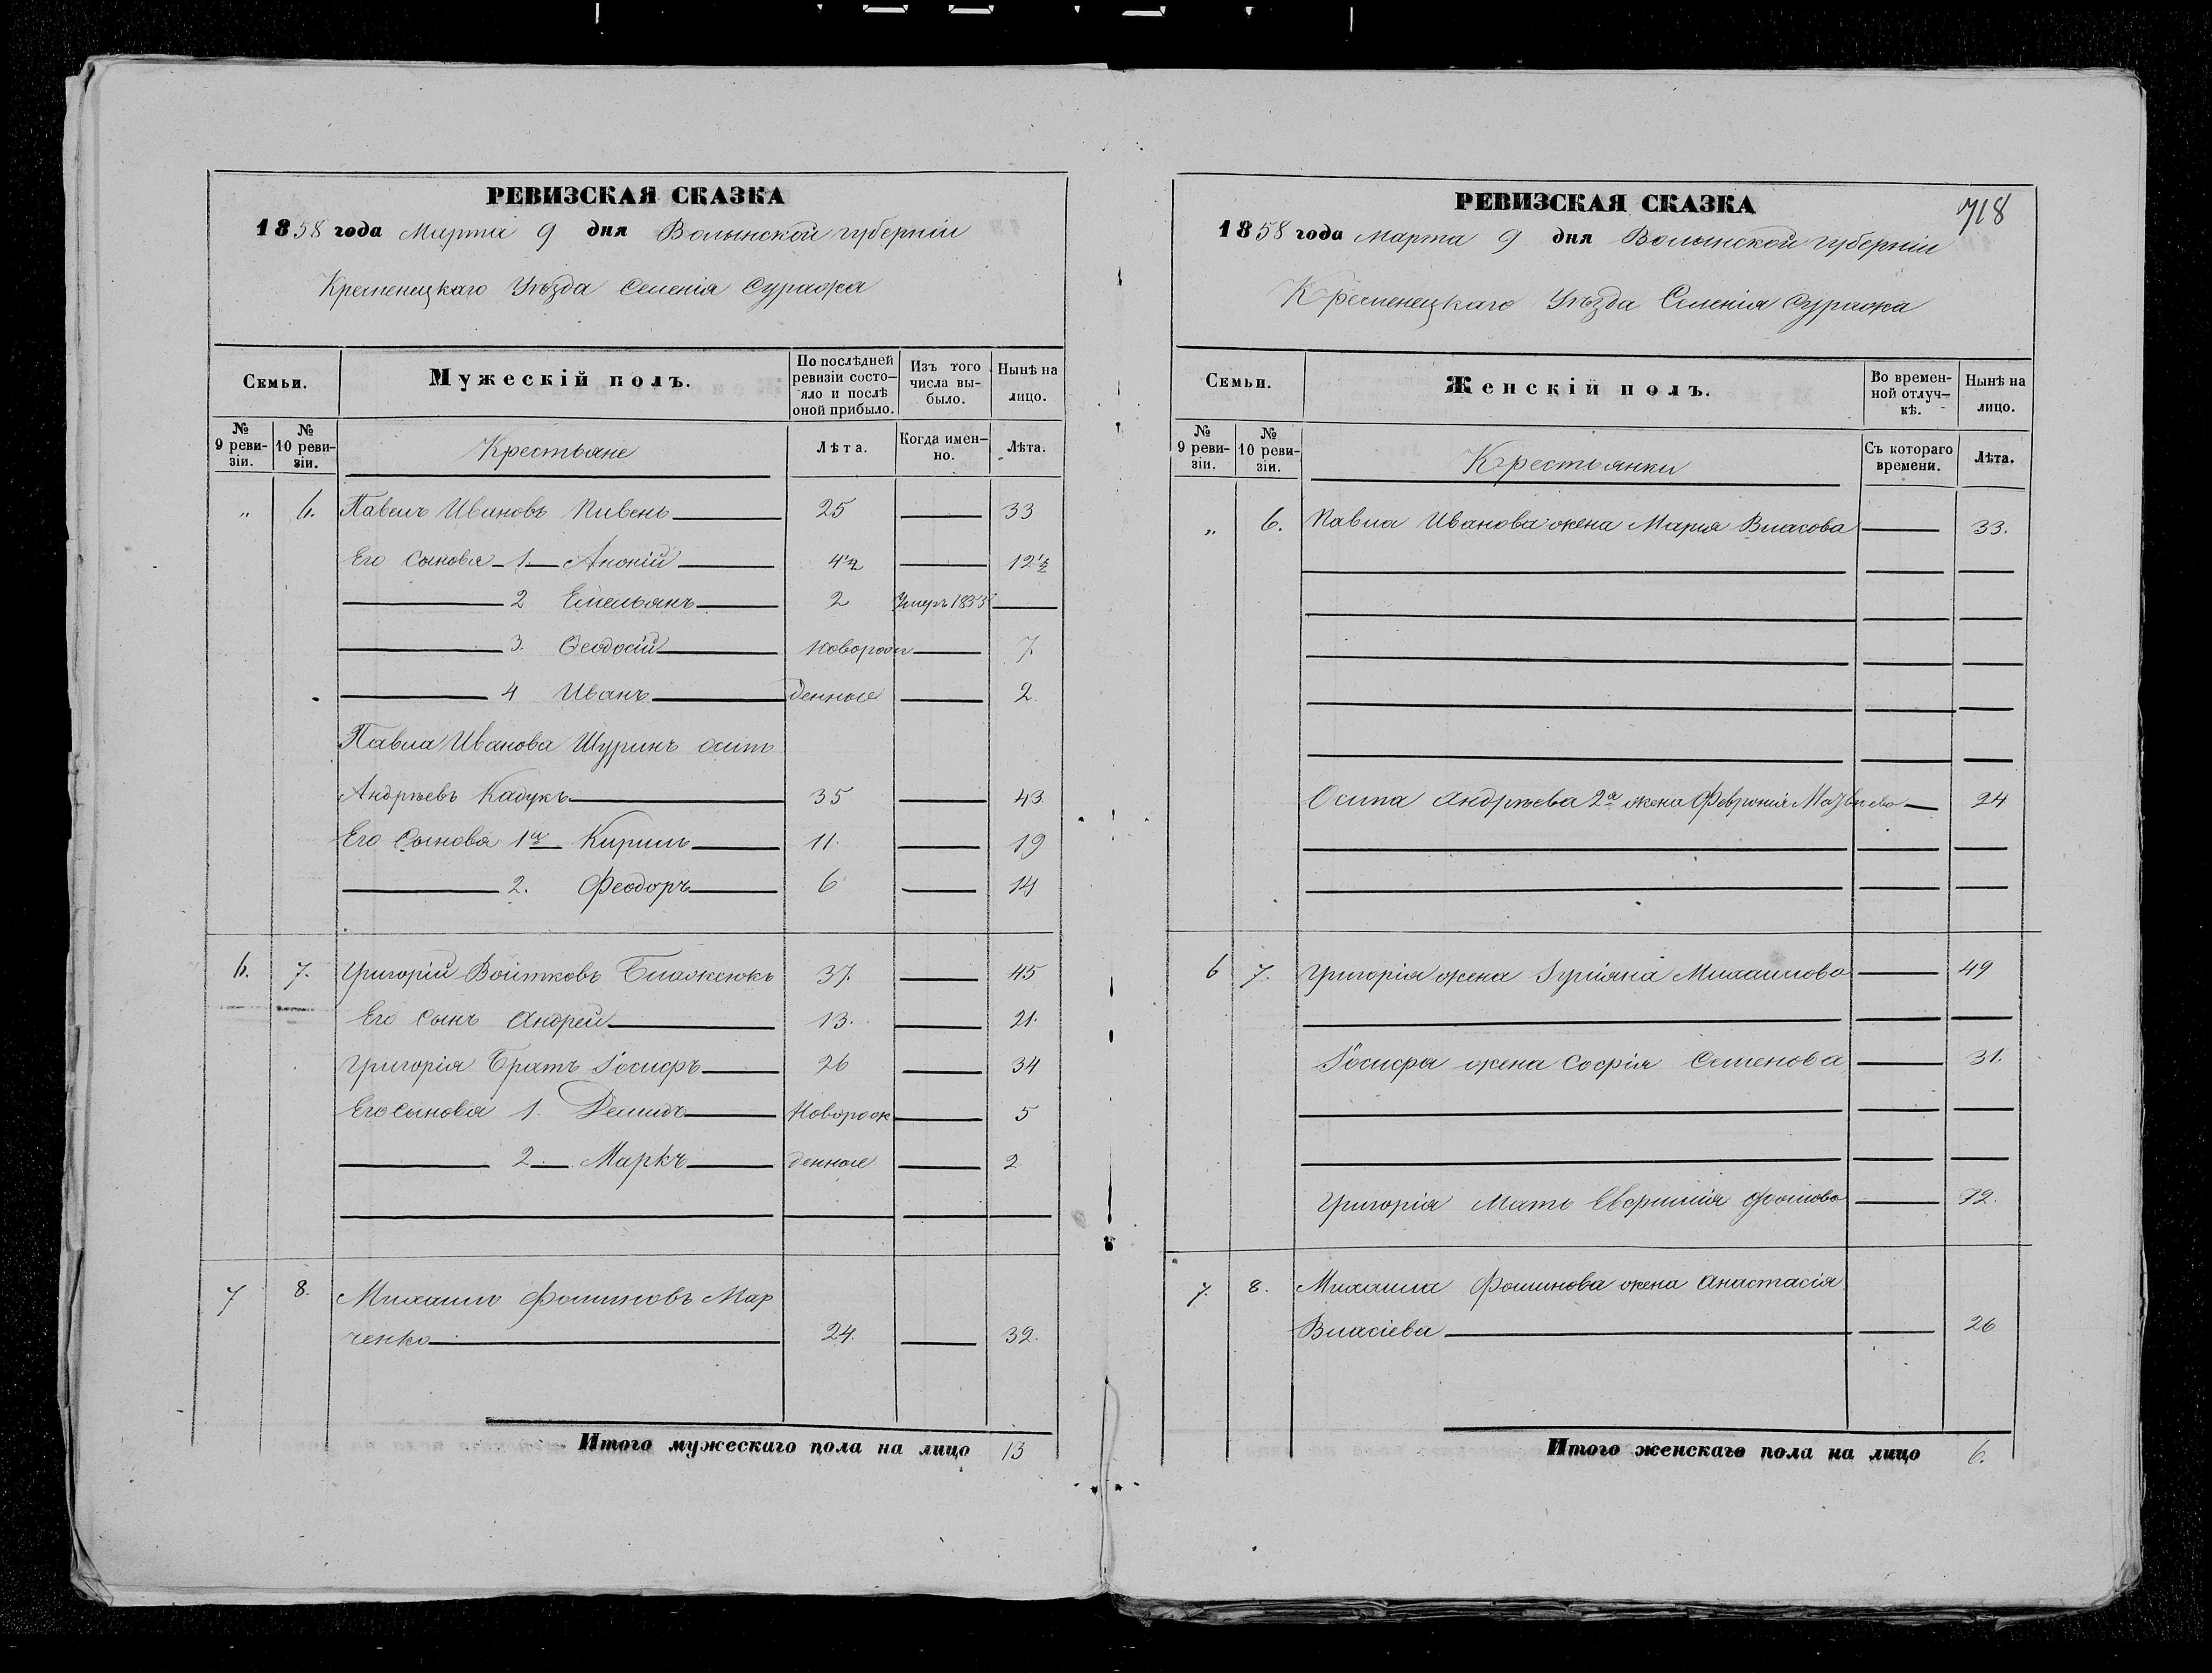 РЕВИЗСКАЯ СКАЗКА
1858 года Марта 9 дня Волынской губерніи
Кременецкаго Уѣзда Селенія Суража
Семьи.
Мужескій полъ.
По послѣдней ревизіи состо-яло и послѣ оной прибыло.
Изъ того числа вы-было.
Нынѣ на лицо.
№ 9 реви-зіи.
№ 10 реви-зіи.
Крестьяне
Лѣта.
Когда имен-но.
Лѣта.
„ 6. Павелъ Ивановъ Пивень 25 33
Его Сыновя 1. 4½ 12½
2 Емельянъ 2 Умеръ 1855
3. Ѳеодосій Новорож 7.
4 Иванъ денные 2.
Павла Иванова Шуринъ Осипъ
Андрѣевъ Кадукъ 35 43
Его Сыновя 1й Кирилъ 11. 19
2. Феодоръ 6 14
6. 7. Григорій Войтковъ 37. 45
Его Сынъ Андрей 13. 21.
Григорія Братъ Іосифъ 26 34
Его Сыновя 1. Демидъ Новорож 5
2. Маркъ денные 2
7 8. Михаилъ Фоминовъ Мар
ченко 24. 32.
Итого мужескаго пола на лицо 13
718
РЕВИЗСКАЯ СКАЗКА
1858 года Марта 9 дня Волынской губерніи
Кременецкаго Уѣзда Селенія Суража
Семьи.
Женскій полъ.
Во времен-ной отлуч-кѣ.
Нынѣ на лицо.
№ 9 реви-зіи.
№ 10 реви-зіи.
Крестьянки
Съ котораго времени.
Лѣта.
„ 6. Павла Иванова жена Марія Власова 33.
Осипа Андрѣева 2а жена Февронія 24
6 7. Григорія жена Михаилова 49
Іосифа жена Софія Семенова 31.
Григорія Мать Евфимія Фомова 72.
7. 8. Михаила Фоминова жена Анастасія
Власіева 26
Итого женскаго пола на лицо 6.